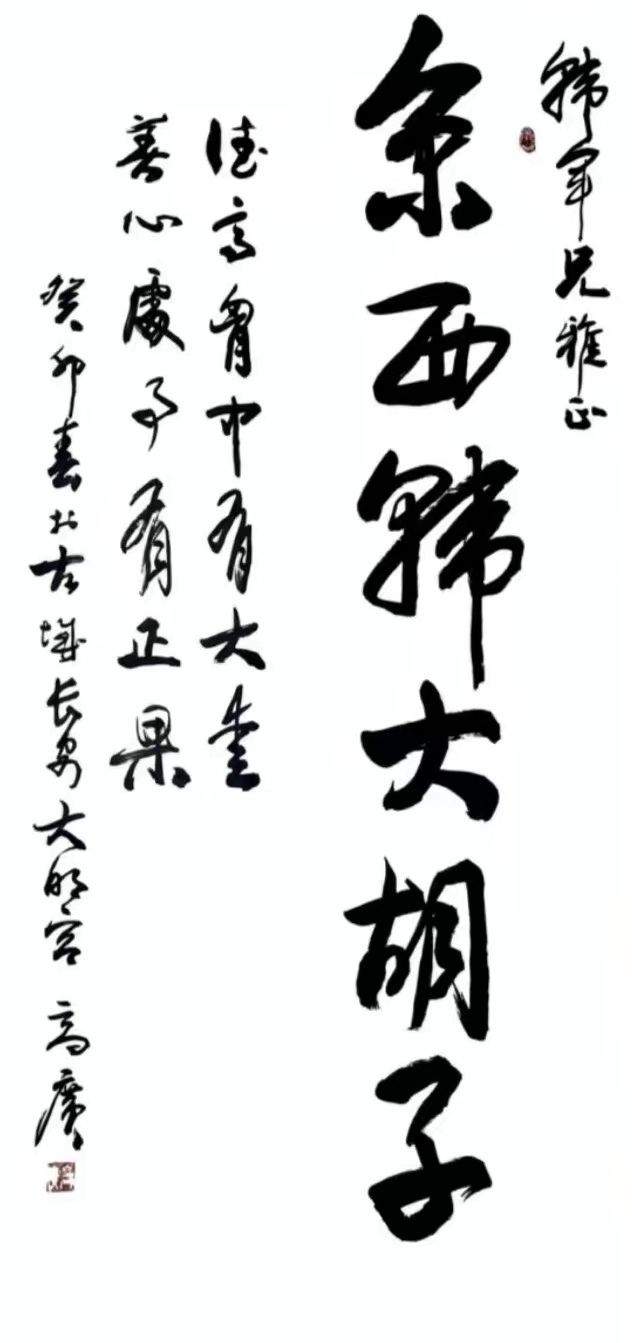 韓军兄雅正
京西韓大胡子
德高胷中有大爱
善心處事有正果
癸卯春於古城长安大明宫 高廣